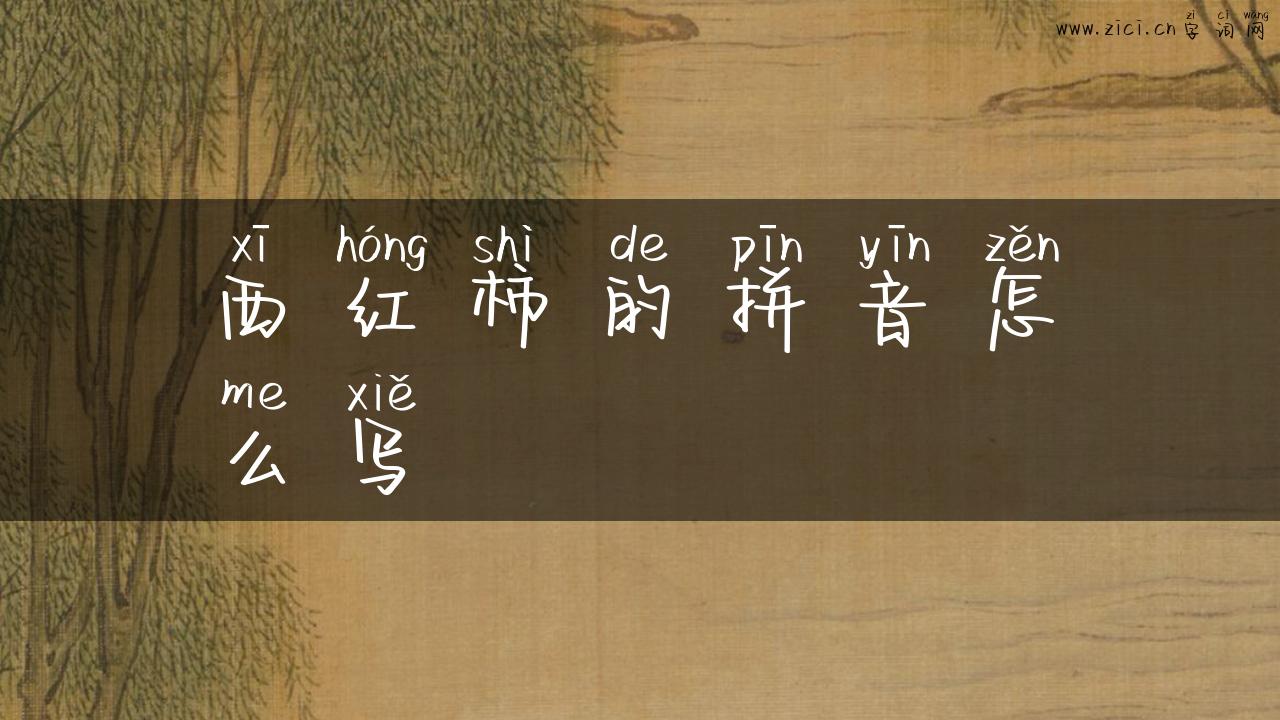 zì cí wǎng
www.zici.cn 字词网
xī hóng shì de pīn yīn zěn
西红柿的拼音怎
me xiě
么写